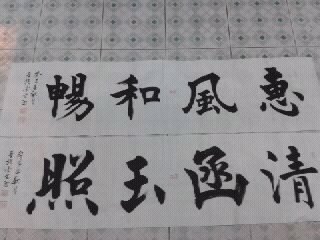 惠風和暢
清函玉照